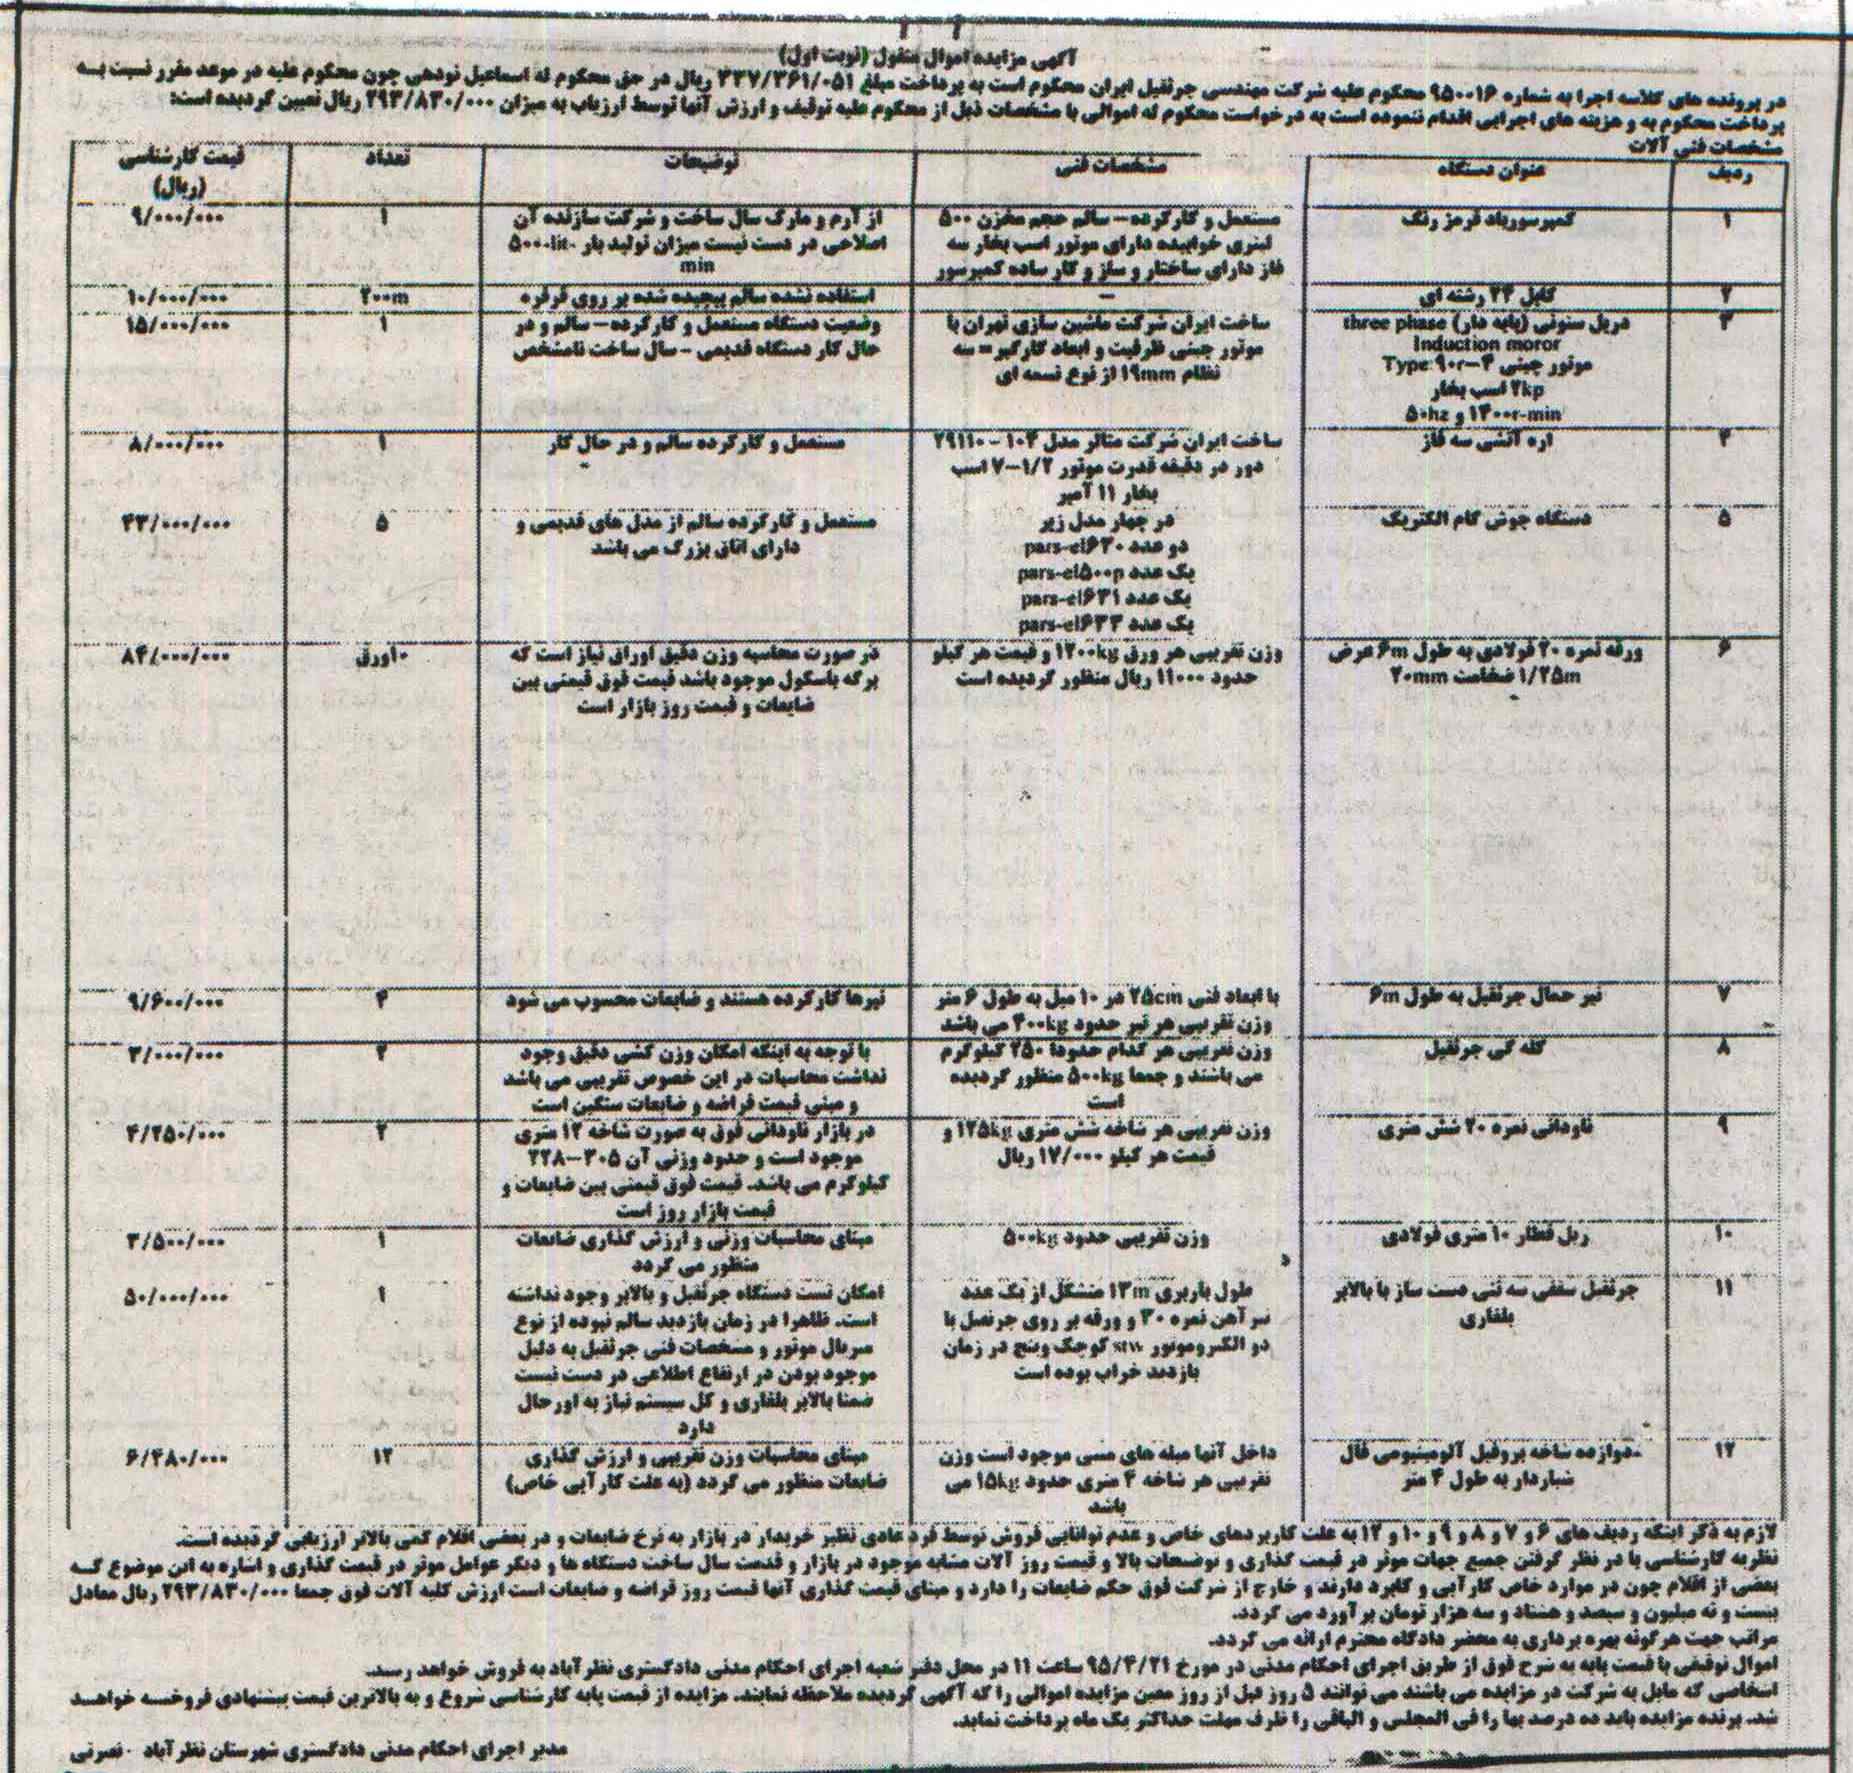 آگهی مزایده اموال منقول (نوبت اول)
در پرونده های کلاسه اجرا به شماره ۹۵۰۰۱۶ محکوم علیه شرکت مهندسی جرثقیل ایران محکوم است به پرداخت مبلغ ۳۳۷/۳۶۱/۰۵۱ ریال در حق محکوم له اسماعیل نودهی چون محکوم علیه در موعد مقرر نسبت به
پرداخت محکوم به و هزینه های اجرایی اقدام ننموده است به درخواست محکوم له اموالی با مشخصات ذیل از محکوم علیه توقیف و ارزش آنها توسط ارزیاب به میزان ۲۹۳/۸۳۰/۰۰۰ ریال تعیین گردیده است:
مشخصات فنی آلات
ردیف عنوان دستگاه مشخصات فنی توضیحات تعداد قیمت کارشناسی
(ریال)
۱ کمپرسورباد قرمز رنگ مستعمل و کارکرده – سالم حجم مخزن ۵۰۰ از آرم و مارک سال ساخت و شرکت سازنده آن ۱ ۹/۰۰۰/۰۰۰
لیتری خوابیده دارای موتور اسب بخار سه اصلاعی در دست نیست میزان تولید بار ۵۰۰-lit-
فاز دارای ساختار و ساز و کار ساده کمپرسور min
۲ کابل ۲۴ رشته ای – استفاده نشده سالم پیچیده شده بر روی قرقره ۲۰۰m ۱۰/۰۰۰/۰۰۰
۳ دریل ستونی (پایه دار) three phase ساخت ایران شرکت ماشین سازی تهران با وضعیت دستگاه مستعمل و کارکرده – سالم و در ۱ ۱۵/۰۰۰/۰۰۰
Induction moror موتور چینی ظرفیت و ابعاد کارگیر = سه حال کار دستگاه قدیمی – سال ساخت نامشخص
موتور چینی Type ۹۰r–۴ نظام ۱۹mm از نوع تسمه ای
۲kp اسب بخار
۱۴۰۰r-min و ۵۰hz
۴ اره آتشی سه فاز ساخت ایران شرکت متالر مدل ۱۰۴ – ۲۹۱۱۰ مستعمل و کارکرده سالم و در حال کار ۱ ۸/۰۰۰/۰۰۰
دور در دقیقه قدرت موتور ۱/۲–۷ اسب
بخار ۱۱ آمپر
۵ دستگاه جوش گام الکتریک در چهار مدل زیر مستعمل و کارکرده سالم از مدل های قدیمی و ۵ ۴۳/۰۰۰/۰۰۰
دو عدد pars-el۶۳۰ دارای اتاق بزرگ می باشد
یک عدد pars-el۵۰۰p
یک عدد pars-el۶۳۱
یک عدد pars-el۶۳۳
۶ ورقه نمره ۲۰ فولادی به طول ۶m عرض وزن تقریبی هر ورق ۱۲۰۰kg و قیمت هر کیلو در صورت محاسبه وزن دقیق اوراق نیاز است که ۰اورق ۸۴/۰۰۰/۰۰۰
۱/۲۵m ضخامت ۲۰mm حدود ۱۱۰۰۰ ریال منظور گردیده است برگه باسکول موجود باشد قیمت فوق قیمتی بین
ضایعات و قیمت روز بازار است
۷ تیر حمال جرثقیل به طول ۶m با ابعاد فنی ۲۵cm در ۱۰ میل به طول ۶ متر تیرها کارکرده هستند و ضایعات محسوب می شود ۴ ۹/۶۰۰/۰۰۰
وزن تقریبی هر تیر حدود ۴۰۰kg می باشد
۸ کله گی جرثقیل وزن تقریبی هر کدام حدودا ۲۵۰ کیلوگرم با توجه به اینکه امکان وزن کشی دقیق وجود ۲ ۳/۰۰۰/۰۰۰
می باشند و جمعا ۵۰۰kg منظور گردیده نداشت محاسبات در این خصوص تقریبی می باشد
است و مبنی قیمت قراضه و ضایعات سنگین است
۹ ناودانی نمره ۲۰ شش متری وزن تقریبی هر شاخه شش متری ۱۲۵kg و در بازار ناودانی فوق به صورت شاخه ۱۲ متری ۲ ۴/۲۵۰/۰۰۰
قیمت هر کیلو ۱۷/۰۰۰ ریال موجود است و حدود وزنی آن ۳۰۵–۲۲۸
کیلوگرم می باشد. قیمت فوق قیمتی بین ضایعات و
قیمت بازار روز است
۱۰ ریل قطار ۱۰ متری فولادی وزن تقریبی حدود ۵۰۰kg مبنای محاسبات وزنی و ارزش گذاری ضایعات ۱ ۳/۵۰۰/۰۰۰
منظور می گردد
۱۱ جرثقیل سقفی سه تنی دست ساز با بالابر طول باربری ۱۳m متشکل از یک عدد امکان تست دستگاه جرثقیل و بالابر وجود نداشته ۱ ۵۰/۰۰۰/۰۰۰
بلغاری تیرآهن نمره ۳۰ و ورقه بر روی جرثقیل با است. ظاهرا در زمان بازدید سالم نبوده از نوع
دو الکتروموتور کوچک وینچ در زمان سریال موتور و مشخصات فنی جرثقیل به دلیل
بازدید خراب بوده است موجود بودن در ارتفاع اطلاعی در دست نیست
ضمنا بالابر بلغاری و کل سیستم نیاز به اورحال
دارد
۱۲ دوازده شاخه پروفیل آلومینیومی فال داخل آنها میله های مسی موجود است وزن مبنای محاسبات وزن تقریبی و ارزش گذاری ۱۲ ۶/۴۸۰/۰۰۰
شیاردار به طول ۴ متر تقریبی هر شاخه ۴ متری حدود ۱۵kg می ضایعات منظور می گردد (به علت کارآیی خاص)
باشد
لازم به ذکر اینکه ردیف های ۶ و ۷ و ۸ و ۹ و ۱۰ و ۱۲ به علت کاربردهای خاص و عدم توانایی فروش توسط فرد عادی نظیر خریدار در بازار به نرخ ضایعات و در بعضی اقلام کمی بالاتر ارزیابی گردیده است.
نظریه کارشناسی با در نظر گرفتن جمیع جهات موثر در قیمت گذاری و توضیحات بالا و قیمت روز آلات مشابه موجود در بازار و قدمت سال ساخت دستگاه ها و دیگر عوامل موثر در قیمت گذاری و اشاره به این موضوع که
بعضی از اقلام چون در موارد خاص کارآیی و کابرد دارند و خارج از شرکت فوق حکم ضایعات را دارد و مبنای قیمت گذاری آنها قیمت روز قراضه و ضایعات است ارزش کلیه آلات فوق جمعا ۲۹۳/۸۳۰/۰۰۰ ریال معادل
بیست و نه میلیون و سیصد و هشتاد و سه هزار تومان برآورد می گردد.
مراتب جهت هرگونه بهره برداری به محضر دادگاه محترم ارائه می گردد.
اموال توقیفی با قیمت پایه به شرح فوق از طریق اجرای احکام مدنی در مورخ ۹۵/۴/۲۱ ساعت ۱۱ در محل دفتر شعبه اجرای احکام مدنی دادگستری نظرآباد به فروش خواهد رسد.
اشخاصی که مایل به شرکت در مزایده می باشند می توانند ۵ روز قبل از روز معین مزایده اموالی را که آگهی گردیده ملاحظه نمایند. مزایده از قیمت پایه کارشناسی شروع و به بالاترین قیمت پیشنهادی فروخته خواهد
شد. برنده مزایده باید ده درصد بها را فی المجلس و الباقی را ظرف مهلت حداکثر یک ماه پرداخت نماید.
مدیر اجرای احکام مدنی دادگستری شهرستان نظرآباد - نصرتی